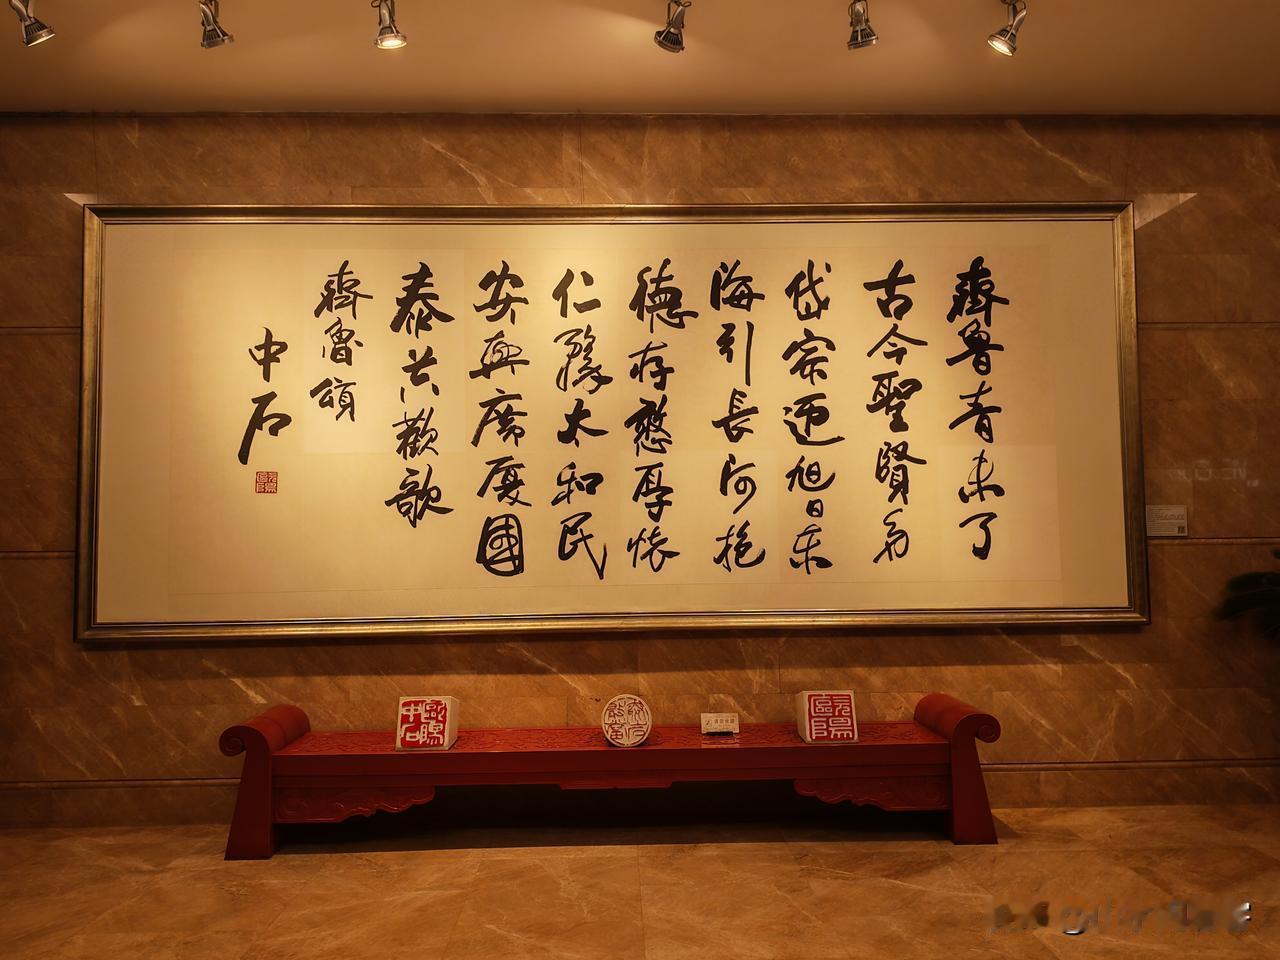 齊魯青未了
古今聖賢多
岱宗迎旭日東
海引長河抱
德存憨厚懷
仁豫太和民
安興廣厦國
泰共歡歌
齊魯頌
中石